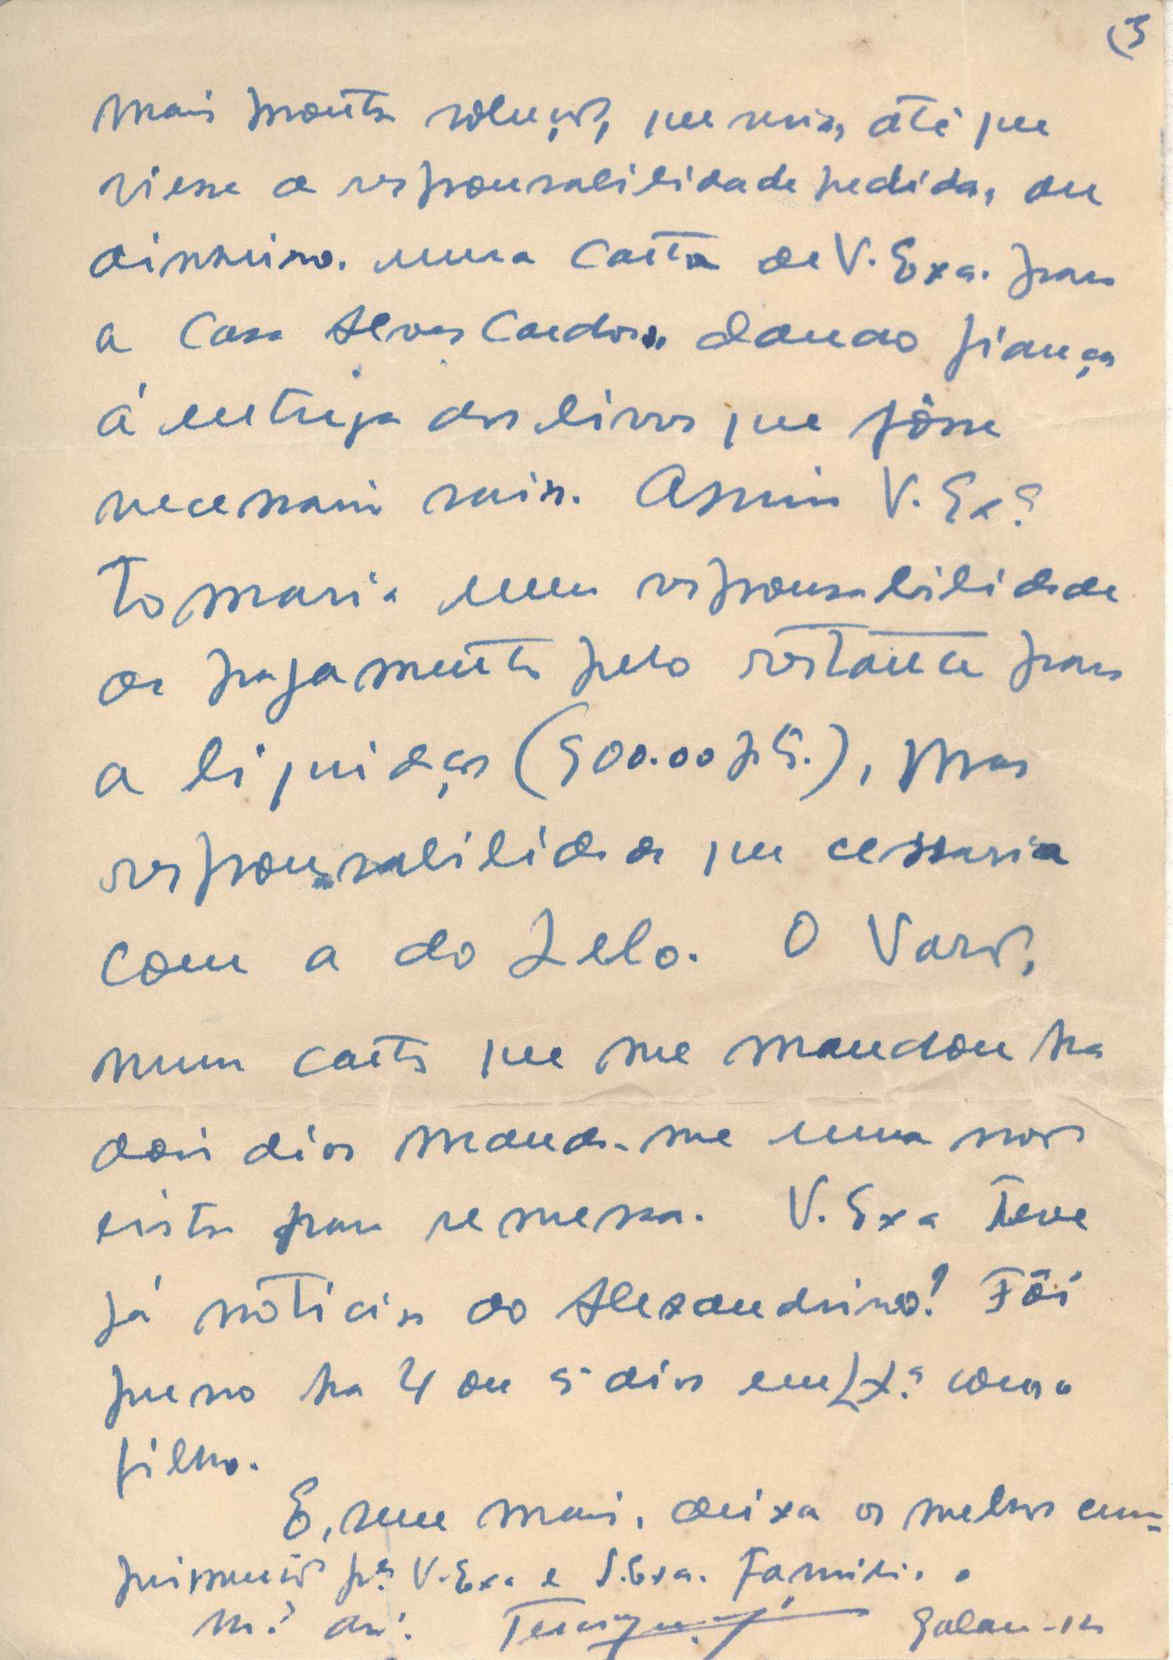 (3
mais pronta solução, que seria, até que
viesse a responsabilidade pedida, ou
dinheiro. uma carta de V. Exa. para
a Casa Alves Cardoso, dando fiança
á entrega dos livros que fôsse
necessario sair. Assim V. Exª
tomaria uma responsabilidade
de pagamento pelo restante para
a liquidação (500.00 p.), mas
responsabilidade que cessaria
com a do Zelo. O
numa carta que me mandou ha
dois dias manda-me uma nova
lista para remessa. V. Exa teve
já noticias do Alexandrino? Fôi
preso ha 4 ou 5 dias em Lxª com o
filho.
E, sem mais, deixa os melhores cum-
primentos pª V. Exa. e S. Exa. Familia. o
mº